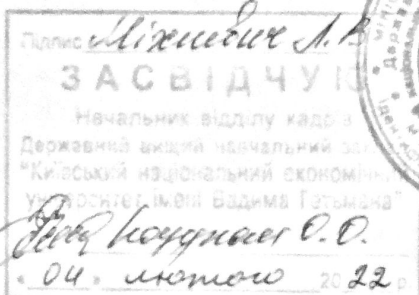 Підпис Міхневич Л.В
ЗАСВІДЧУЮ
Начальник відділу кадрів
Державний вищий навчальний за
"Київський національний економічни
університет імені Вадима Гетьмана"
О.О.
« 04 » лютого 2022 р